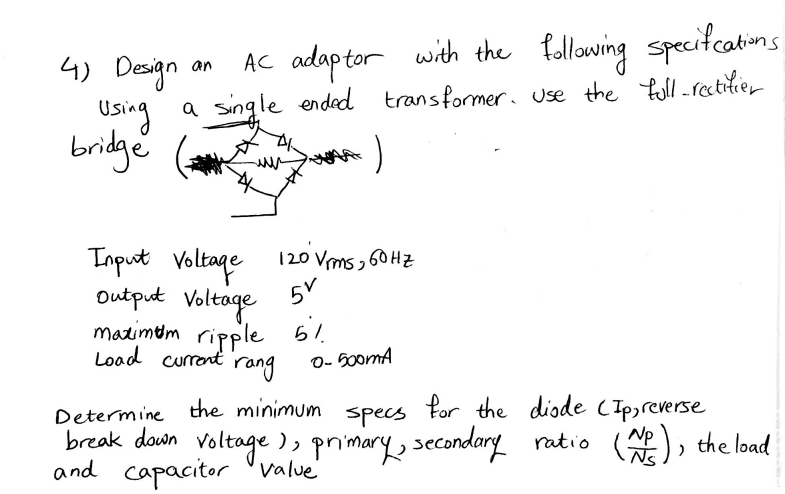 4) Design an AC adaptor with the following specifcations
Using a single ended transformer. use the full-rectifier
bridge ( )
Input Voltage 120 Vrms, 60HZ
output Voltage 5V
maximum ripple 5%
Load current rang 0-500mA
Determine the minimum specs for the diode (Ip, reverse
break down voltage), primary, secondary ratio (Np/Ns), the load
and capacitor value